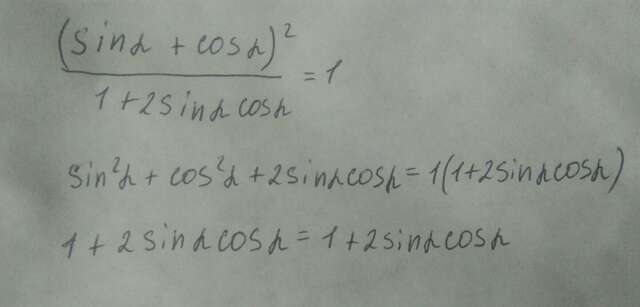 (sinα + cosα)²
/ 1 + 2sinα cosα = 1
sin²α + cos²α + 2sinα cosα = 1(1 + 2sinα cosα)
1 + 2sinα cosα = 1 + 2sinα cosα